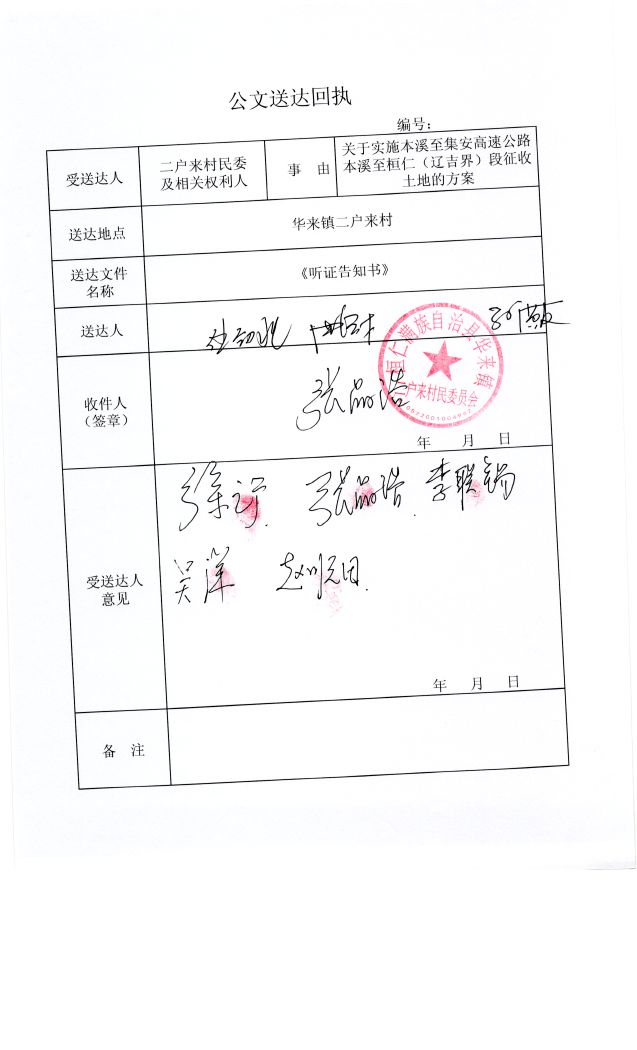 公文送达回执
编号：
受送达人
二户来村民委
及相关权利人
事 由
关于实施本溪至集安高速公路
本溪至桓仁（辽吉界）段征收
土地的方案
送达地点
华来镇二户来村
送达文件
名称
《听证告知书》
送达人
桓仁满族自治县华来镇
二户来村民委员会
收件人
（签章）
张品浩
年 月 日
受送达人
意见
张品浩 李联锡
吴洋
年 月 日
备 注